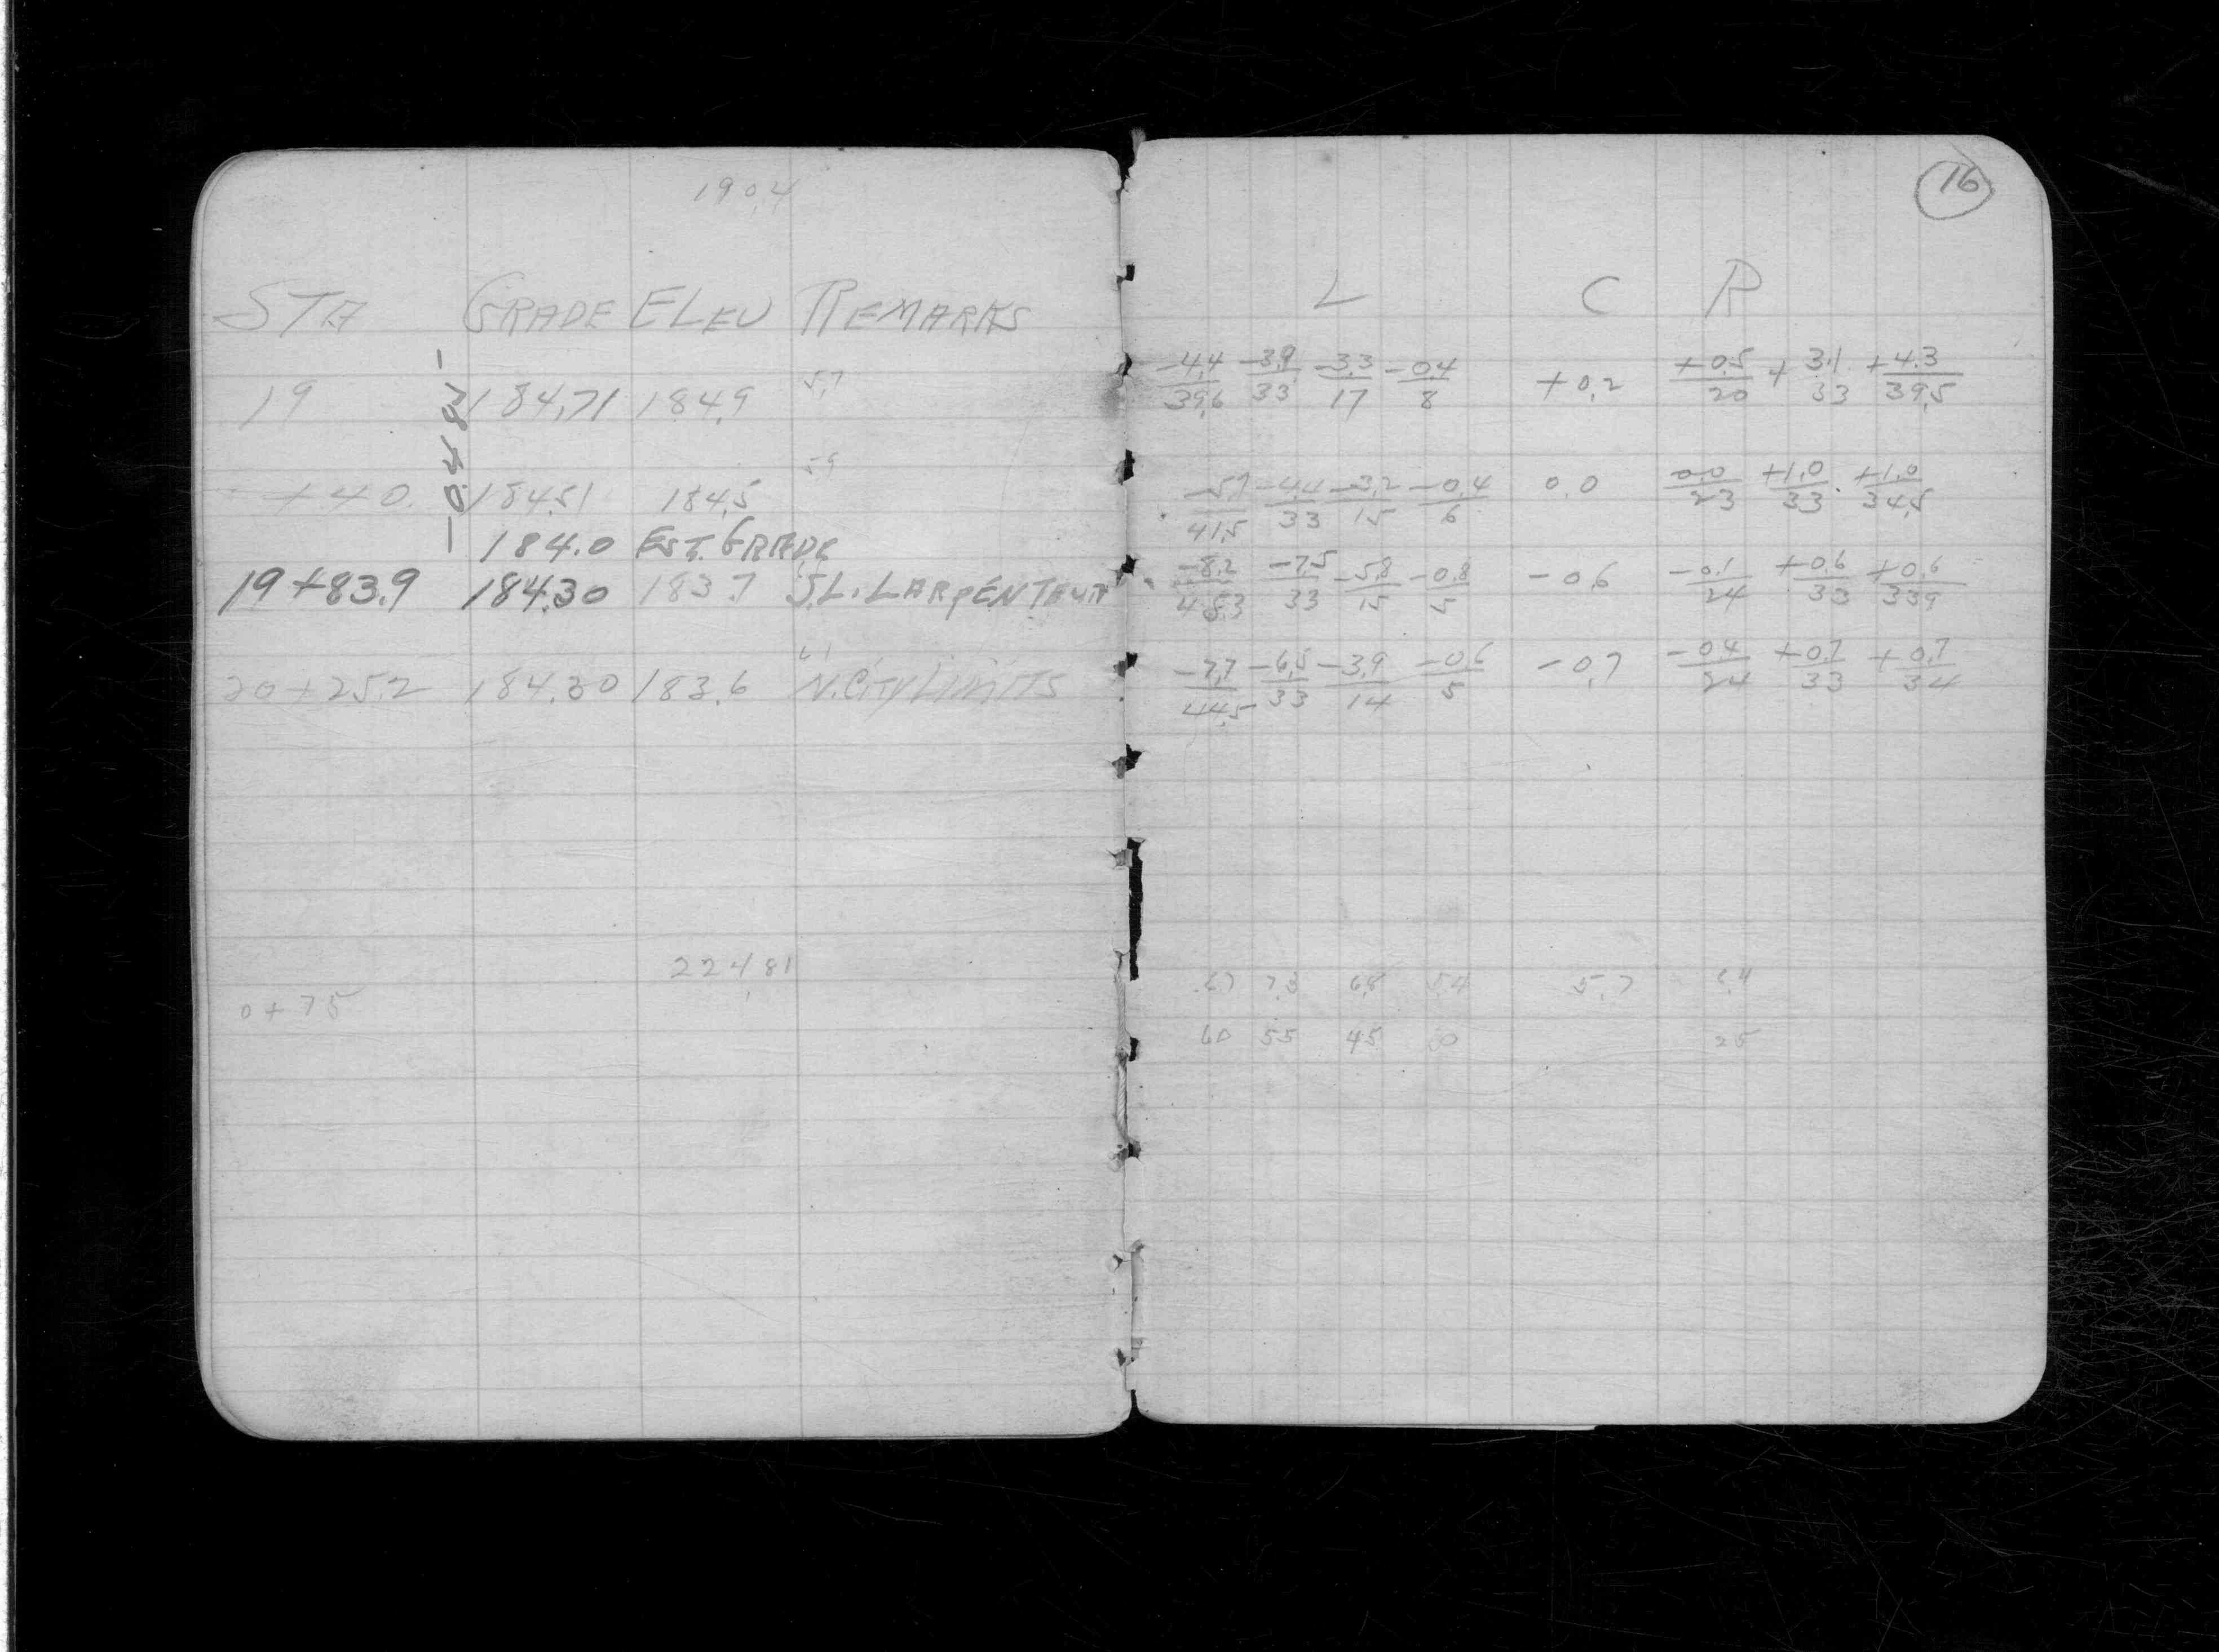 190.4
STA GRADE ELEV REMARKS
19 184.71 184.9 5.7
-0.482-
5.9
+40. 184.51 184.5
184.0 EST. GRADE
19+83.9 184.30 183.7 S.L. LARPENTEUR
6.1
20+25.2 184.30 183.6 N. CITY LIMITS
224.81
0+75
16
L C R
-4.4 -3.9 -3.3 -0.4 +0.2 +0.5 +3.1 +4.3
39.6 33 17 8 20 33 39.5
-5.9 -4.4 -3.2 -0.4 0.0 0.0 +1.0 +1.0
41.5 33 15 6 23 33 34.5
-8.2 -7.5 -5.8 -0.8 -0.6 -0.1 +0.6 +0.6
48.3 33 15 5 24 33 33.9
-7.7 -6.5 -3.9 -0.6 -0.7 -0.4 +0.7 +0.7
44.5 33 14 5 24 33 34
6.7 7.3 6.8 5.4 5.7
60 55 45 25